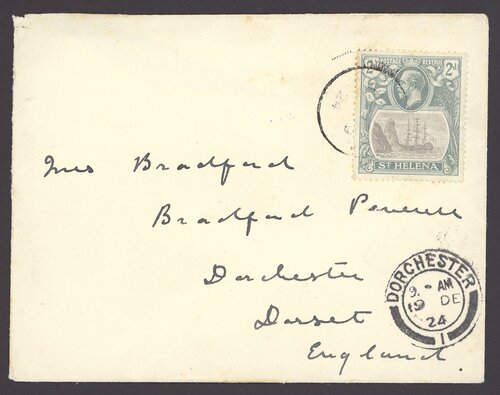 POSTAGE & REVENUE
2d 2d
ST HELENA
24
Mrs Bradford
Bradford Peverell
Dorchester
Dorset
England.
DORCHESTER
9. - AM
19 DE
24
1